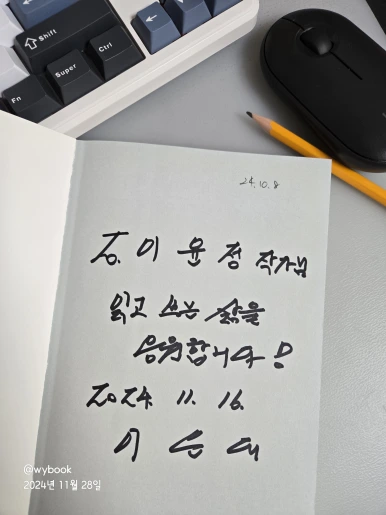 ⇧ Shift
←
Fn Super Ctrl
24.10.8
to. 이 윤 정 작가님
읽고 쓰는 삶을
응원합니다!
2024. 11. 16.
이 은 대
@wybook
2024년 11월 28일